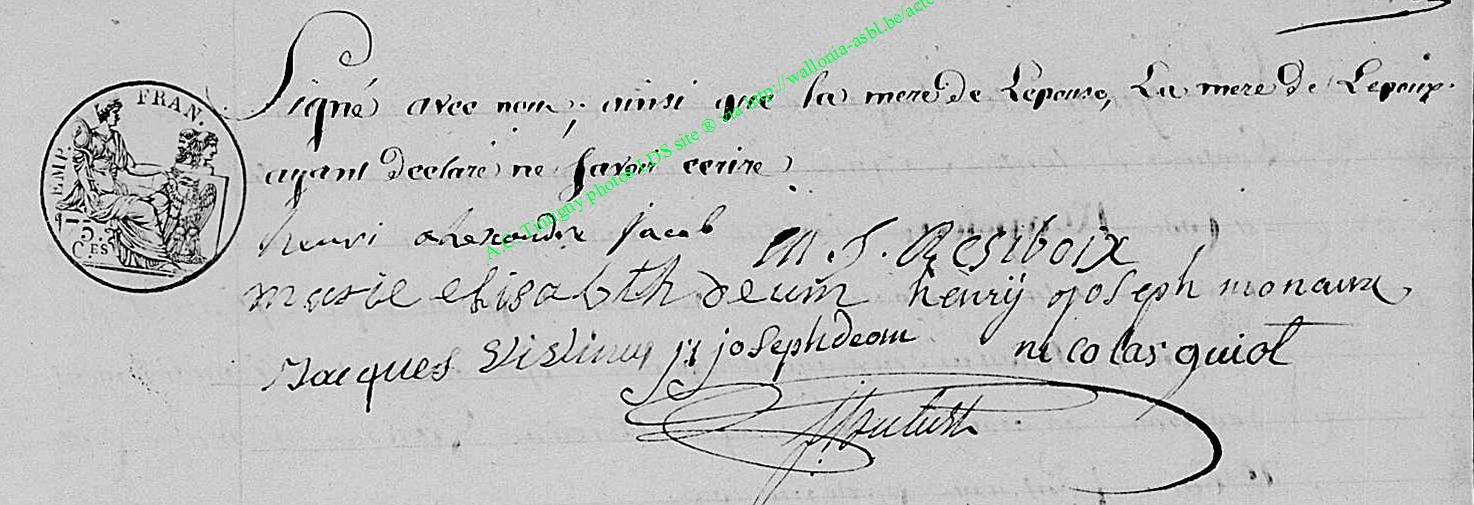 EMP. FRAN.
5 CES
Signé avec nous, ainsi que la mere de Lepouse, La mere de Lepoux
ayant declaré ne savoir ecrire
A.C. Tintigny photos LDS site ® via http://wallonia-asbl.be/acte
henri alexandre jacob M. J. Resiboix
marie elisabth deum henrÿ joseph monaux
Jacques j joseph deom nicolas guiot